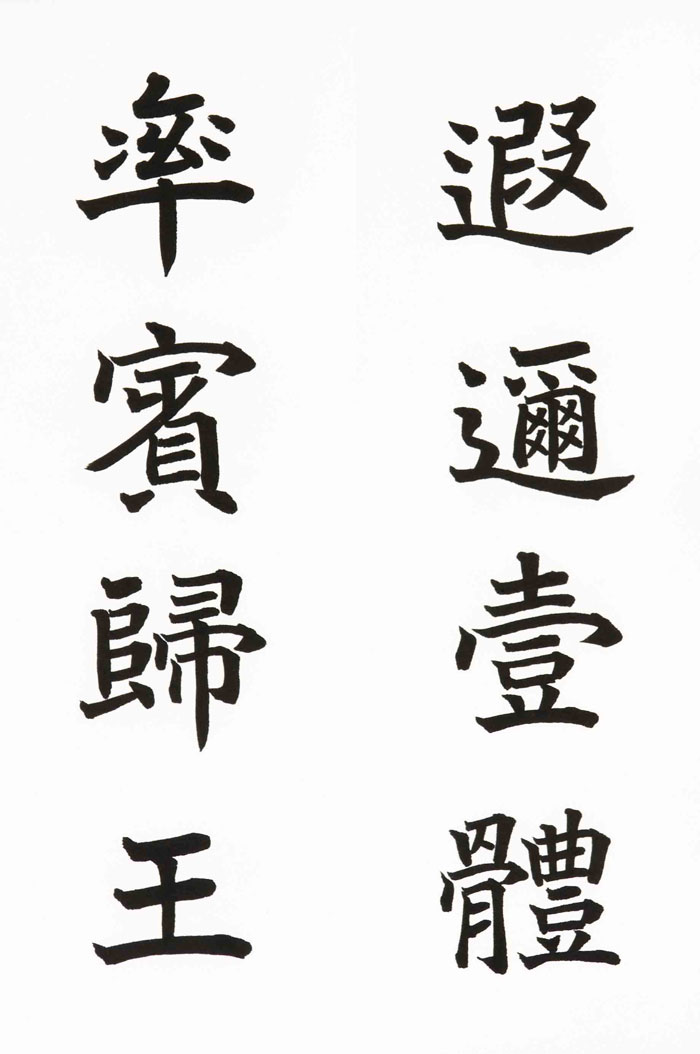 遐邇壹體
率賓歸王